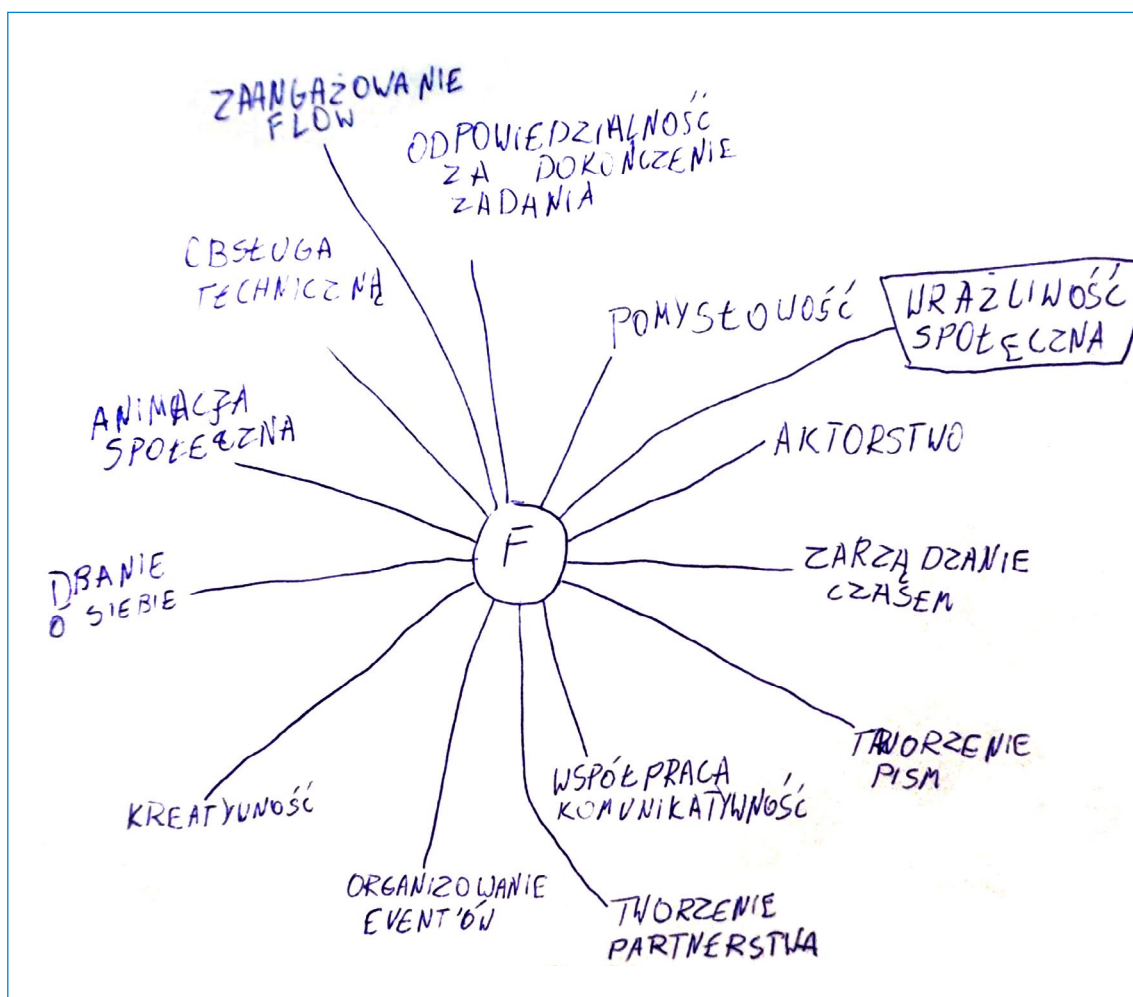 ZAANGAŻOWANIE
FLOW
ODPOWIEDZIALNOŚĆ
ZA DOKOŃCZENIE
ZADANIA
OBSŁUGA
TECHNICZNĄ
POMYSŁOWOŚĆ
WRAŻLIWOŚĆ
SPOŁĘCZNA
ANIMACJA
SPOŁECZNA
AKTORSTWO
F
DBANIE
O SIEBIE
ZARZĄDZANIE
CZASEM
TWORZENIE
PISM
WSPÓŁPRACA
KOMUNIKATYWNOŚĆ
KREATYWNOŚĆ
ORGANIZOWANIE
EVENT'ÓW
TWORZENIE
PARTNERSTWA